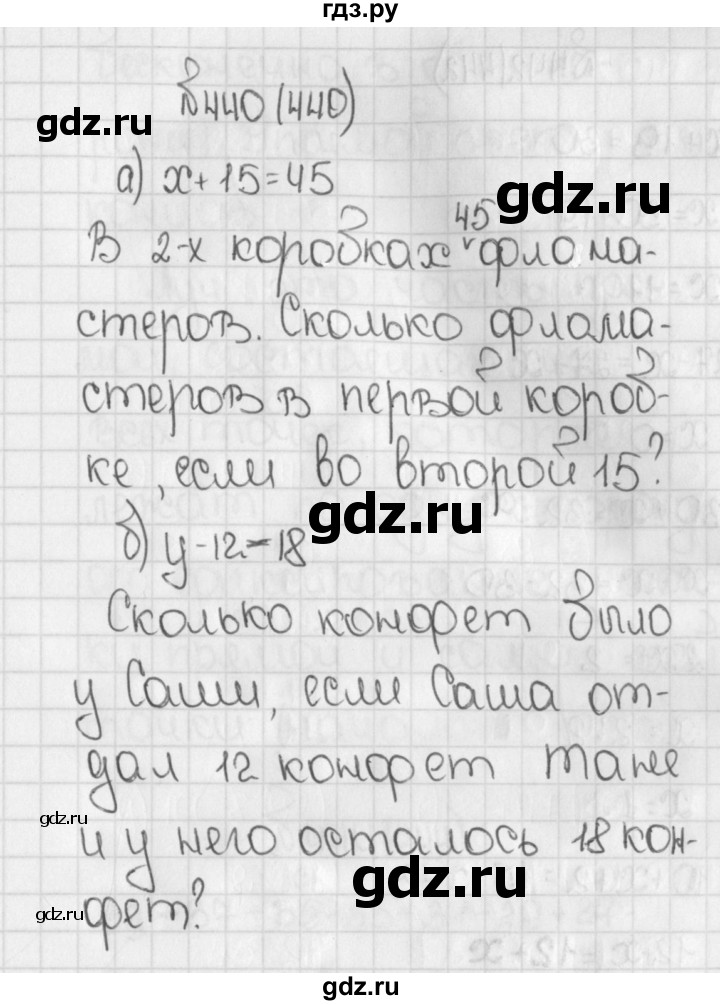 гдз.ру
№440 (440)
gdz.ru
а) x + 15 = 45
gdz.ru
45
В 2-х коробках ᵛ флома-
стеров. Сколько флама-
стеров в первой короб-
ке, если во второй 15?
gdz.ru
б) y - 12 = 18
Сколько конфет было
у Саши, если Саша от-
дал 12 конфет Тане
gdz.ru
и у него осталось 18 кон-
gdz.ru
gdz.ru
фет?
gdz.ru